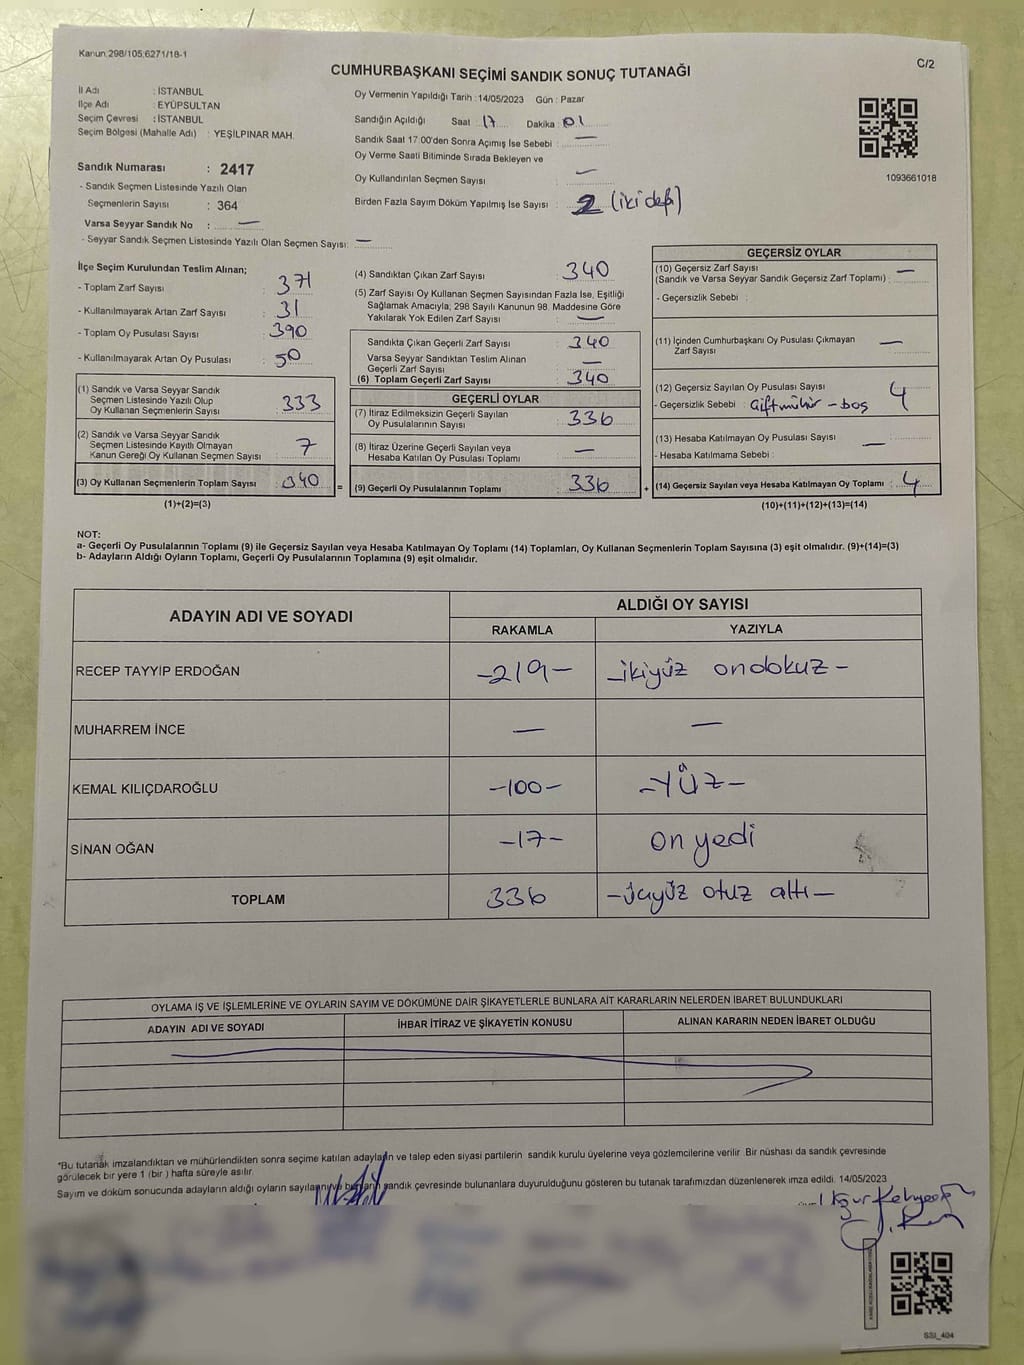 Kanun:298/105;6271/18-1
C/2
CUMHURBAŞKANI SEÇİMİ SANDIK SONUÇ TUTANAĞI
İl Adı : İSTANBUL
İlçe Adı : EYÜPSULTAN
Seçim Çevresi : İSTANBUL
Seçim Bölgesi (Mahalle Adı) : YEŞİLPINAR MAH.
Sandık Numarası : 2417
- Sandık Seçmen Listesinde Yazılı Olan
Seçmenlerin Sayısı : 364
Varsa Seyyar Sandık No : —
- Seyyar Sandık Seçmen Listesinde Yazılı Olan Seçmen Sayısı: —
Oy Vermenin Yapıldığı Tarih : 14/05/2023 Gün : Pazar
Sandığın Açıldığı Saat : 17 Dakika : 01
Sandık Saat 17:00'den Sonra Açımış İse Sebebi : —
Oy Verme Saati Bitiminde Sırada Bekleyen ve
Oy Kullandırılan Seçmen Sayısı : —
Birden Fazla Sayım Döküm Yapılmış İse Sayısı : 2 (iki defa)
1093661018
İlçe Seçim Kurulundan Teslim Alınan;
- Toplam Zarf Sayısı : 371
- Kullanılmayarak Artan Zarf Sayısı : 31
- Toplam Oy Pusulası Sayısı : 390
- Kullanılmayarak Artan Oy Pusulası : 50
(1) Sandık ve Varsa Seyyar Sandık
Seçmen Listesinde Yazılı Olup
Oy Kullanan Seçmenlerin Sayısı : 333
(2) Sandık ve Varsa Seyyar Sandık
Seçmen Listesinde Kayıtlı Olmayan
Kanun Gereği Oy Kullanan Seçmen Sayısı : 7
(3) Oy Kullanan Seçmenlerin Toplam Sayısı : 340
(1)+(2)=(3)
(4) Sandıktan Çıkan Zarf Sayısı : 340
(5) Zarf Sayısı Oy Kullanan Seçmen Sayısından Fazla İse, Eşitliği
Sağlamak Amacıyla, 298 Sayılı Kanunun 98. Maddesine Göre
Yakılarak Yok Edilen Zarf Sayısı : —
Sandıkta Çıkan Geçerli Zarf Sayısı : 340
Varsa Seyyar Sandıktan Teslim Alınan
Geçerli Zarf Sayısı : —
(6) Toplam Geçerli Zarf Sayısı : 340
GEÇERLİ OYLAR
(7) İtiraz Edilmeksizin Geçerli Sayılan
Oy Pusulalarının Sayısı : 336
(8) İtiraz Üzerine Geçerli Sayılan veya
Hesaba Katılan Oy Pusulası Toplamı : —
= (9) Geçerli Oy Pusulalarının Toplamı : 336
GEÇERSİZ OYLAR
(10) Geçersiz Zarf Sayısı : —
(Sandık ve Varsa Seyyar Sandık Geçersiz Zarf Toplamı)
- Geçersizlik Sebebi :
(11) İçinden Cumhurbaşkanı Oy Pusulası Çıkmayan
Zarf Sayısı : —
(12) Geçersiz Sayılan Oy Pusulası Sayısı : 4
- Geçersizlik Sebebi : Çiftmühür - boş
(13) Hesaba Katılmayan Oy Pusulası Sayısı : —
- Hesaba Katılmama Sebebi :
+ (14) Geçersiz Sayılan veya Hesaba Katılmayan Oy Toplamı : 4
(10)+(11)+(12)+(13)=(14)
NOT:
a- Geçerli Oy Pusulalarının Toplamı (9) ile Geçersiz Sayılan veya Hesaba Katılmayan Oy Toplamı (14) Toplamları, Oy Kullanan Seçmenlerin Toplam Sayısına (3) eşit olmalıdır. (9)+(14)=(3)
b- Adayların Aldığı Oyların Toplamı, Geçerli Oy Pusulalarının Toplamına (9) eşit olmalıdır.
ADAYIN ADI VE SOYADI ALDIĞI OY SAYISI
RAKAMLA YAZIYLA
RECEP TAYYİP ERDOĞAN -219- -ikiyüz ondokuz-
MUHARREM İNCE — —
KEMAL KILIÇDAROĞLU -100- -Yüz-
SİNAN OĞAN -17- on yedi
TOPLAM 336 -üçyüz otuz altı-
OYLAMA İŞ VE İŞLEMLERİNE VE OYLARIN SAYIM VE DÖKÜMÜNE DAİR ŞİKAYETLERLE BUNLARA AİT KARARLARIN NELERDEN İBARET BULUNDUKLARI
ADAYIN ADI VE SOYADI İHBAR İTİRAZ VE ŞİKAYETİN KONUSU ALINAN KARARIN NEDEN İBARET OLDUĞU
*Bu tutanak imzalandıktan ve mühürlendikten sonra seçime katılan adayların ve talep eden siyasi partilerin sandık kurulu üyelerine veya gözlemcilerine verilir. Bir nüshası da sandık çevresinde
görülecek bir yere 1 (bir ) hafta süreyle asılır.
Sayım ve döküm sonucunda adayların aldığı oyların sayılarını ve bunların sandık çevresinde bulunanlara duyurulduğunu gösteren bu tutanak tarafımızdan düzenlenerek imza edildi. 14/05/2023
SSI_404